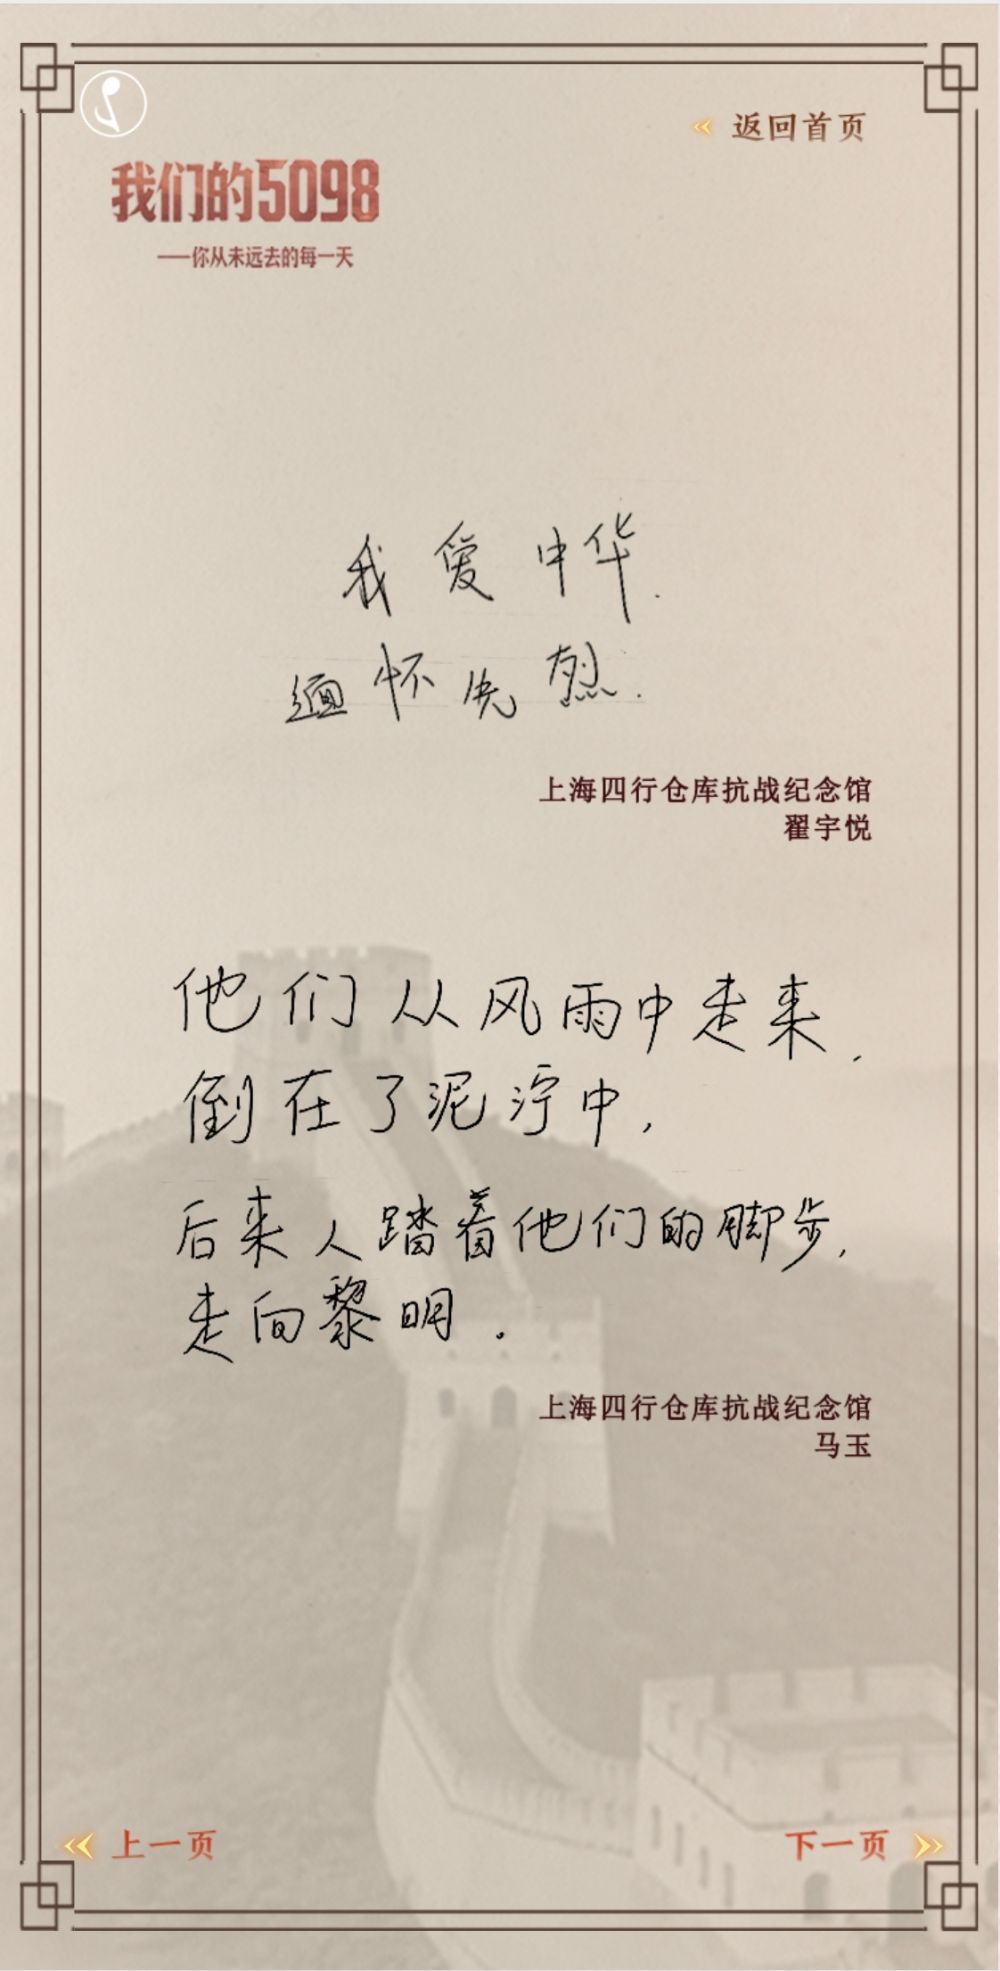 返回首页
我们的5098
——你从未远去的每一天
我爱中华.
缅怀先烈.
上海四行仓库抗战纪念馆
翟宇悦
他们从风雨中走来,
倒在了泥泞中,
后来人踏着他们的脚步,
走向黎明.
上海四行仓库抗战纪念馆
马玉
上一页
下一页